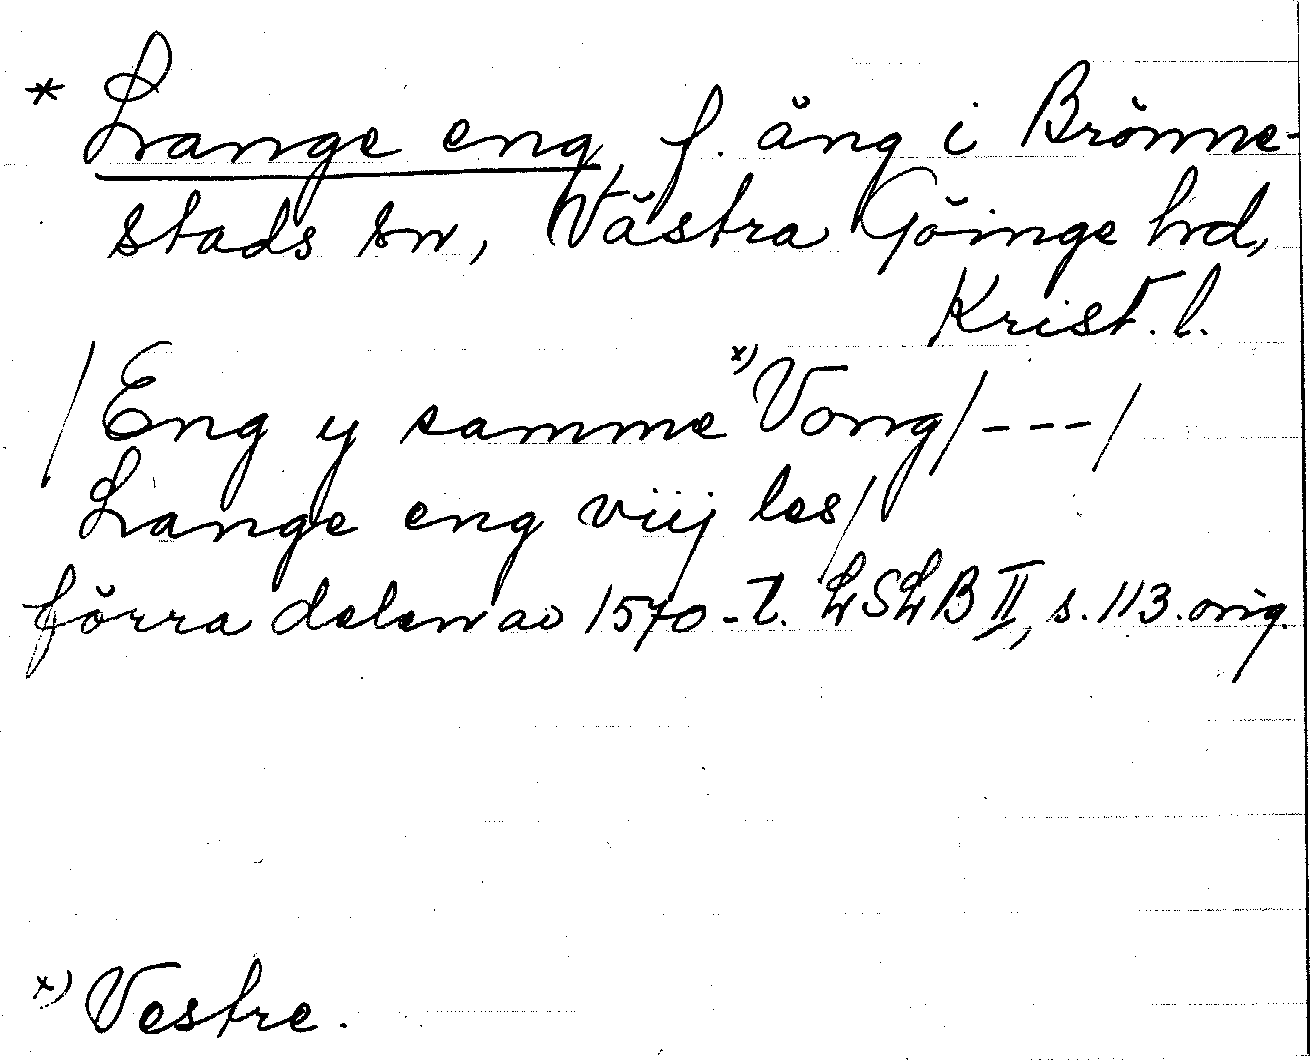 * Lange eng, f. äng i Brönne-
stads sn, Västra Göinge hd,
Krist. l.
/Eng y samme x) Vong/---/
Lange eng viij les/
förra delen av 1570-t. LSLB II, s. 113. orig.
x) Vestre.